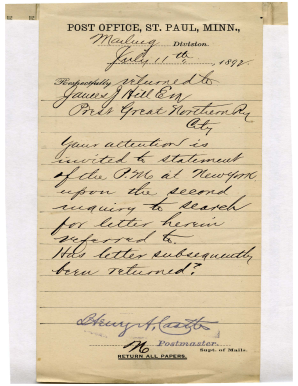 POST OFFICE, ST. PAUL, MINN.,
Mailing Division.
July 11th, 1892.
Respectfully returned to
James J Hill Esq
Prest Great Northern Ry
City
Your attention is
invited to statement
of the P.M. at New York
upon the second
inquiry to search
for letter herein
referred to.
Has letter subsequently
been returned?
Henry A. Castle
Postmaster.
Supt. of Mails.
RETURN ALL PAPERS.